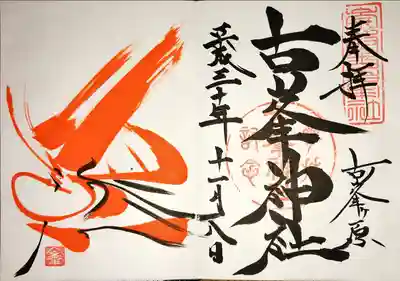 奉拝
古峯ヶ原
古峯神社
平成三十年十一月八日